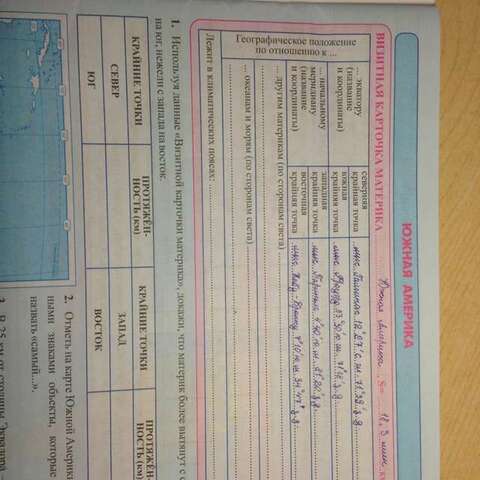 ЮЖНАЯ АМЕРИКА
ВИЗИТНАЯ КАРТОЧКА МАТЕРИКА Южная Америка S= 18,3 млн. к
Географическое положение
по отношению к ...
... экватору
(название
и координаты)
северная
крайняя точка мыс Гальинас 12°27'с.ш. 71°39'з.д.
южная
крайняя точка мыс Фроуэрд 53°
... начальному
меридиану
(название
и координаты)
западная
крайняя точка мыс Париньяс 4°40'ю.ш. 81°20'з.д.
восточная
крайняя точка мыс Кабу-Бранку 7°10'ю.ш. 34°47'з.д.
... другим материкам (по сторонам света)
... океанам и морям (по сторонам света)
Лежит в климатических поясах:
1. Используя данные «Визитной карточки материка», докажи, что материк более вытянут с с
на юг, нежели с запада на восток.
КРАЙНИЕ ТОЧКИ
ПРОТЯЖЁН-
НОСТЬ (км)
КРАЙНИЕ ТОЧКИ
ПРОТЯЖЕН-
НОСТЬ (км)
СЕВЕР
ЗАПАД
ЮГ
ВОСТОК
2. Отметь на карте Южной Америк
ными знаками объекты, которые
назвать «самый...».
3. В 25 км от столицы Эквадора